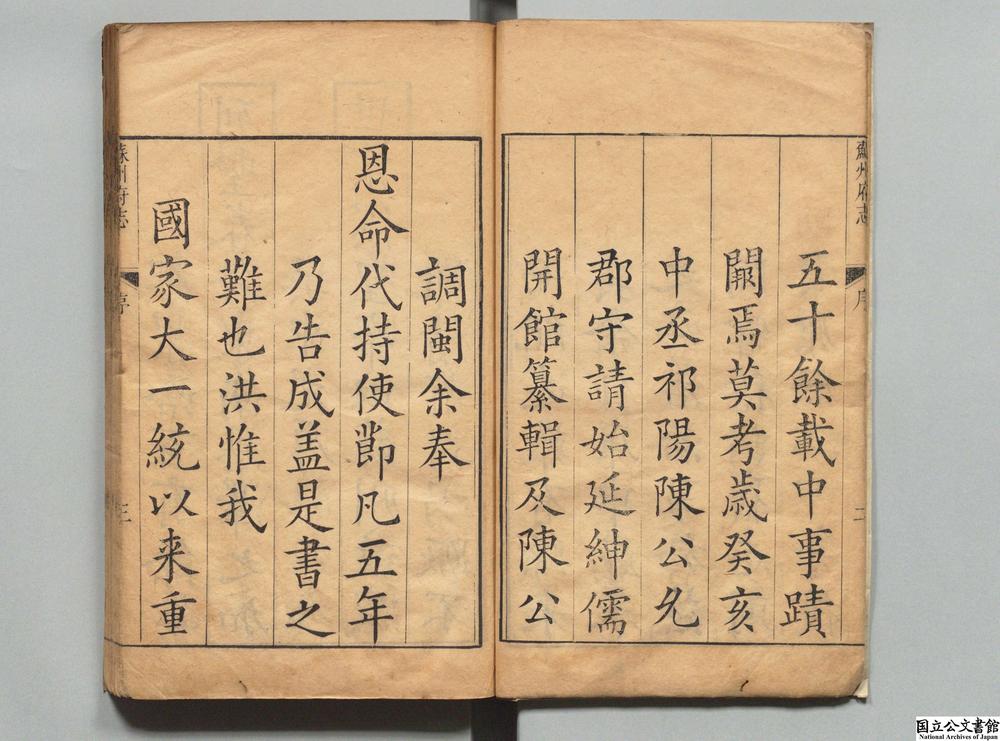 蘇州府志
序
二
五十餘載中事蹟
闕焉莫考歲癸亥
中丞祁陽陳公允
郡守請始延紳儒
開館纂輯及陳公
調閩余奉
恩命代持使節凡五年
乃告成盖是書之
難也洪惟我
國家大一統以来重
蘇州府志
序
三
国立公文書館
National Archives of Japan